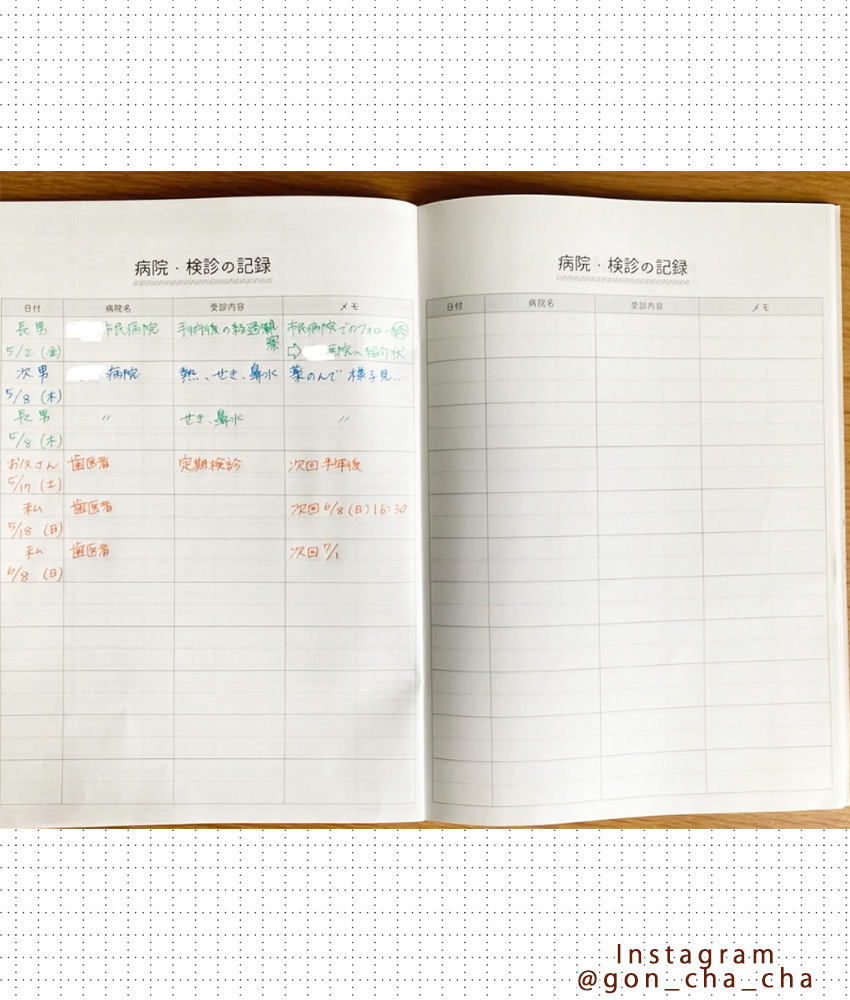 病院・検診の記録
日付 病院名 受診内容 メモ
長男 市民病院 手術後の経過観察 市民病院でのフォロー終
5/2(金) ⇨ 病院へ紹介状
次男 病院 熱、せき、鼻水 薬のんで様子見…
5/8(木)
長男 〃 せき、鼻水 〃
5/8(木)
お父さん 歯医者 定期検診 次回半年後
5/17(土)
私 歯医者 次回6/8(日)16:30
5/18(日)
私 歯医者 次回7/1
6/8(日)
病院・検診の記録
日付 病院名 受診内容 メモ
Instagram
@gon_cha_cha